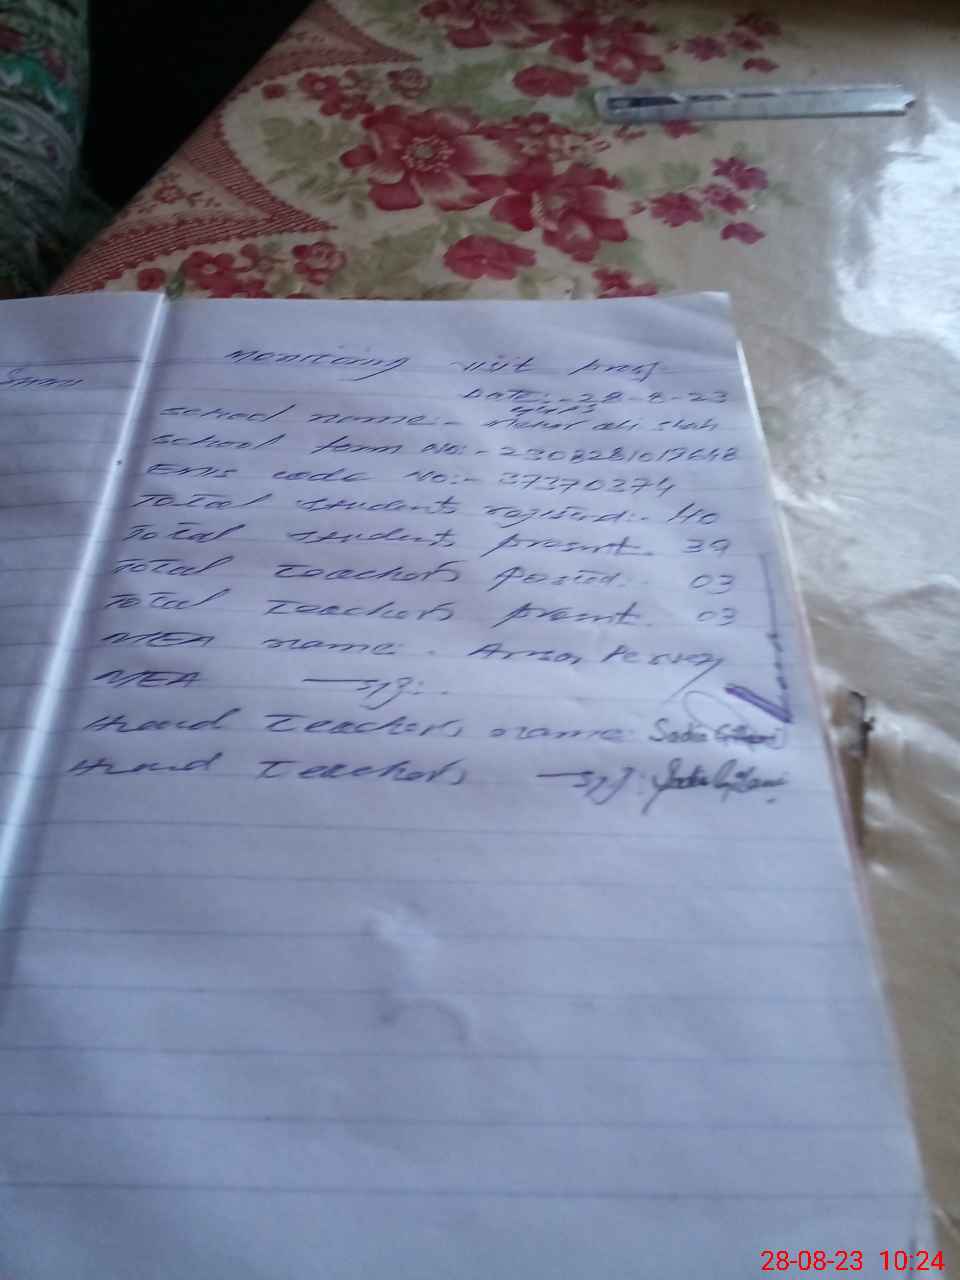 Monitoring visit prof
Date:- 28-8-23
School name:- GGPS Mehar Ali Shah
School form No:- 2308281017648
EMIS code No:- 37370374
Total students registerd:- 40
Total students present. 39
Total Teachers Posted:. 03
Total Teachers present. 03
MEA name:. Pervez
MEA sig:.
Head Teachers name: Sadia
Head Teachers sig: Sadia
28-08-23 10:24